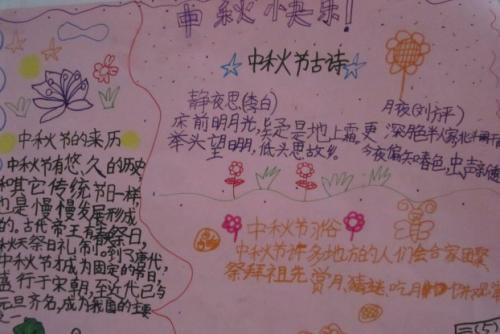 中秋快乐!
中秋节古诗
静夜思(李白)
床前明月光,疑是地上霜。
举头望明月,低头思故乡。
月夜(刘方平)
更深月色半人家,北斗
今夜偏知春色,虫声新透
中秋节的来历
中秋节有悠久的历史
和其它传统节日一样,
也是慢慢发展形成
的,古代帝王有祭日,
秋天祭日礼制,到了唐代,
中秋节才成为固定的节日,
盛行于宋朝,至近代已与
元旦齐名,成为我国的主要
中秋节习俗
中秋节许多地方的人们会合家团聚
祭拜祖先,赏月,猜谜,吃月